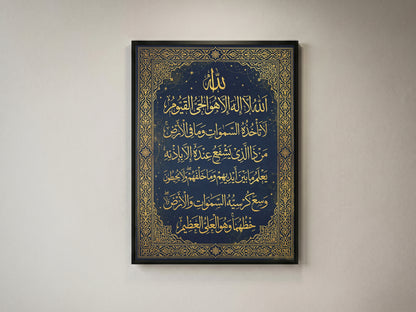 الله
الله لا إله إلا هو الحي القيوم
لا تأخذه السموات وما في الأرض
من ذا الذي يشفع عنده إلا بإذنه
يعلم ما بين أيديهم وما خلفهم ولا
وسع كرسيه السموات والأرض
حفظهما وهو العلي العظيم